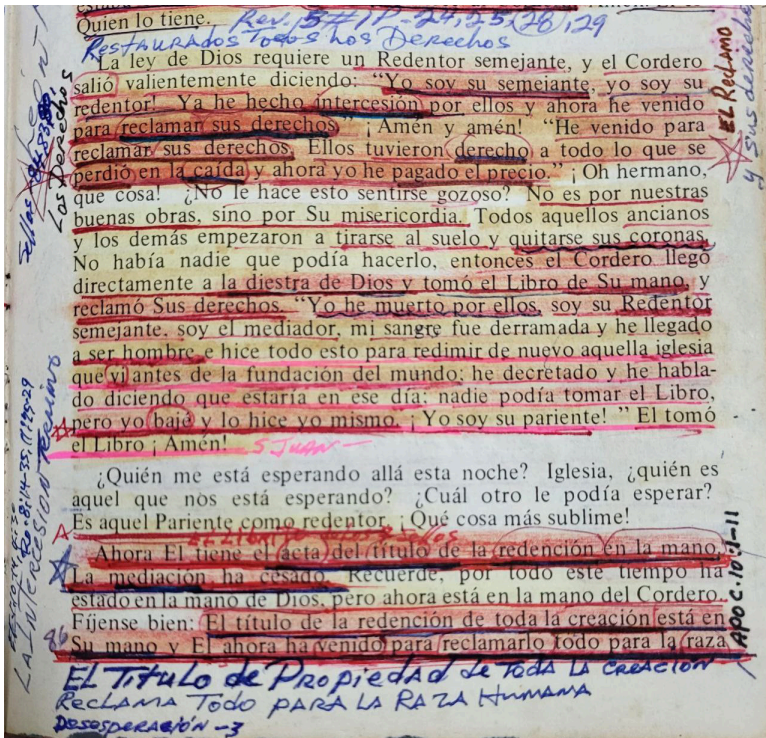 Quien lo tiene.
Rev. 5 # 1 P-24,25,(28),29
Restaurados Todos Los Derechos
La ley de Dios requiere un Redentor semejante, y el Cordero
salió valientemente diciendo: “Yo soy su semejante, yo soy su
redentor! Ya he hecho intercesión por ellos y ahora he venido
para reclamar sus derechos” ¡Amén y amén! “He venido para
reclamar sus derechos. Ellos tuvieron derecho a todo lo que se
perdió en la caída y ahora yo he pagado el precio.” ¡Oh hermano,
que cosa! ¿No le hace esto sentirse gozoso? No es por nuestras
buenas obras, sino por Su misericordia. Todos aquellos ancianos
y los demás empezaron a tirarse al suelo y quitarse sus coronas.
No había nadie que podía hacerlo, entonces el Cordero llegó
directamente a la diestra de Dios y tomó el Libro de Su mano, y
reclamó Sus derechos. “Yo he muerto por ellos, soy su Redentor
semejante. soy el mediador, mi sangre fue derramada y he llegado
a ser hombre e hice todo esto para redimir de nuevo aquella iglesia
que vi antes de la fundación del mundo; he decretado y he habla-
do diciendo que estaría en ese día; nadie podía tomar el Libro,
pero yo bajé y lo hice yo mismo. ¡Yo soy su pariente! ” El tomó
el Libro ¡Amén!
5 Juan
¿Quién me está esperando allá esta noche? Iglesia, ¿quién es
aquel que nos está esperando? ¿Cuál otro le podía esperar?
Es aquel Pariente como redentor. ¡Qué cosa más sublime!
Ahora El tiene el acta del título de la redención en la mano,
La mediación ha cesado. Recuerde, por todo este tiempo ha
estado en la mano de Dios, pero ahora está en la mano del Cordero.
Fíjense bien: El título de la redención de toda la creación está en
Su mano y El ahora ha venido para reclamarlo todo para la raza
86
El Titulo de Propiedad de Toda La Creación
Reclama Todo Para La Raza Humana
Desesperación -3
Los Derechos
La Intercesion Termino
Ro=8:14-35,17:25-29
EL Reclamo
y sus derechos
Apoc.10:1-11